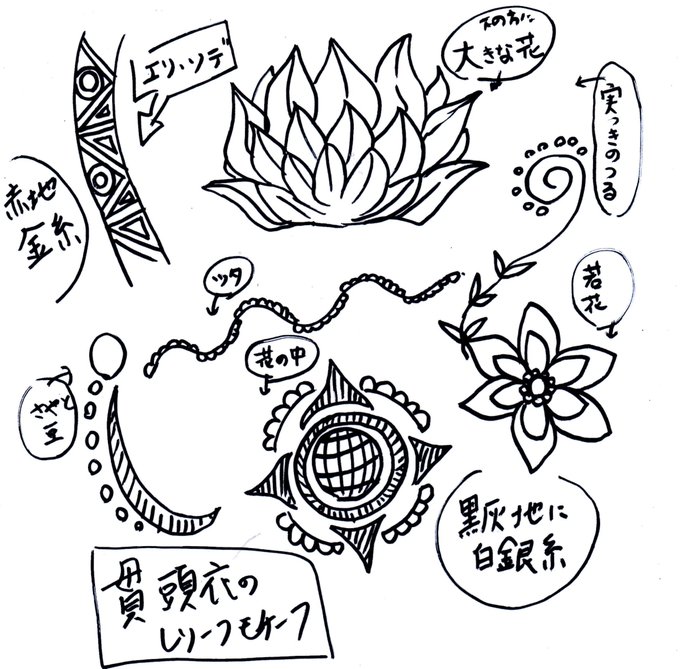 エリ・ソデ
下の方に
大きな花
実つきのつる
赤地
金糸
ツタ
若
花
花の中
さやと
豆
黒灰地に
白銀糸
貫頭衣の
レリーフモチーフ